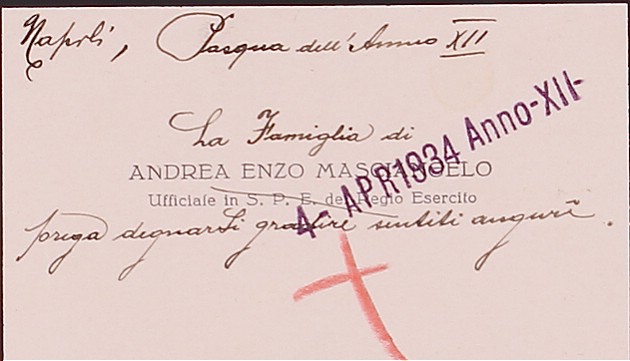 Napoli, Pasqua dell'Anno XII
La Famiglia di
ANDREA ENZO MASCIANGELO
Ufficiale in S. P. E. del Regio Esercito
prega degnarsi gradire sentiti auguri.
4- APR 1934 Anno-XII-